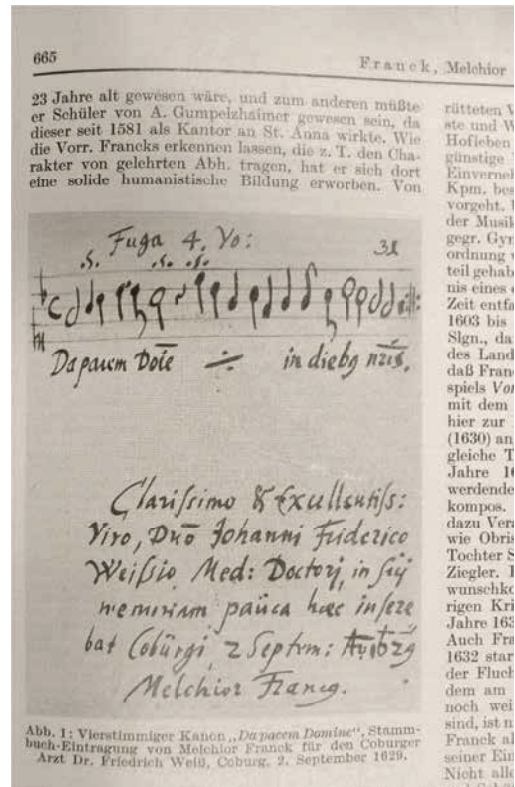 665
Franck, Melchior
23 Jahre alt gewesen wäre, und zum anderen müßte
er Schüler von A. Gumpelzhaimer gewesen sein, da
dieser seit 1581 als Kantor an St. Anna wirkte. Wie
die Vorr. Francks erkennen lassen, die z. T. den Cha-
rakter von gelehrten Abh. tragen, hat er sich dort
eine solide humanistische Bildung erworben. Von
Fuga 4. Vo:
Da pacem Dōīe ÷ in diebg nr̄is.
Clarissimo & Excellentiss:
Viro, Dn̄o Johanni Friderico
Weissio Med: Doctorj, in suj
memoriam pauca haec insere
bat Coburgi, 2 Septem:
Melchior Francg.
Abb. 1: Vierstimmiger Kanon „Da pacem Domine“, Stamm-
buch-Eintragung von Melchior Franck für den Coburger
Arzt Dr. Friedrich Weiß, Coburg, 2. September 1629.
rütteten V
ste und W
Hofleben
günstige
Einverneh
Kpm. bes
vorgeht.
der Musik
gegr. Gyn
ordnung
teil gehab
nis eines
Zeit entfa
1603 bis
Slgn., da
des Land
daß Franc
spiels Vor
mit dem
hier zur
(1630) an
gleiche T
Jahre 16
werdende
kompos.
dazu Vera
wie Obris
Tochter S
Ziegler.
wunschko
rigen Kri
Jahre 163
Auch Fra
1632 star
der Fluch
dem am
noch wei
sind, ist n
Franck al
seiner Ein
Nicht alle